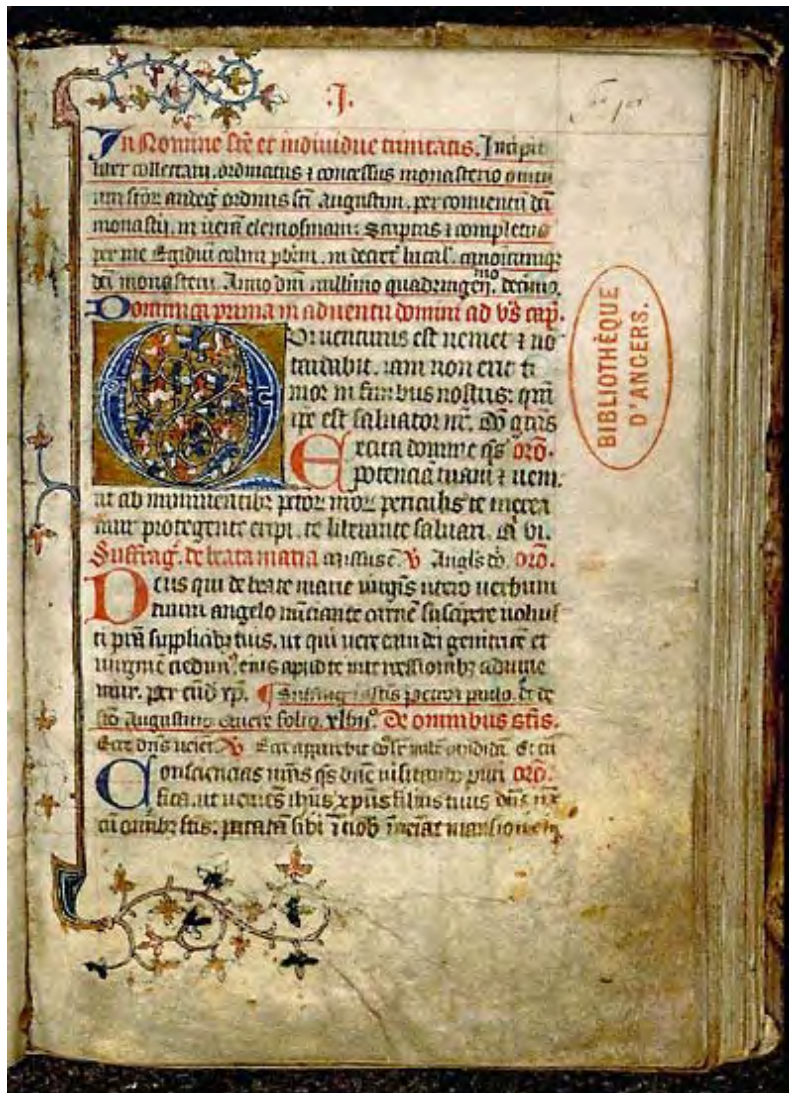 .J.
In Nomine sc̄e et indiuidue trinitatis. Incipit
liber collectar̄. ordinatus ⁊ concessus monasterio omniū
ordinis sc̄i Augustini. per conuentū dc̄i
monastīj. in uerā elemosinam: Scriptus ⁊ completus
per me Egidiū
dc̄i monasterii. Anno dn̄i millimo quadringenmo. decimo.
Dominica prima in aduentu domini ad vs̄ cap̄.
Qui uenturus est ueniet ⁊ nō
tardabit. iam non erit ti
mor in finibus nostris: qm̄
ip̄e est saluator nr̄. Do gr̄as
Excita domine qs̄ orō.
potencia tuam ⁊ ueni.
ut ab imminentibꝫ pctōꝝ nr̄oꝝ periculis te merea
mur protegente eripi. te liberante saluari. Q̄ vi.
Suffraḡ. de beata maria missus ē ℣ Angl̄s dn̄i. orō.
Deus qui de beate marie uirgīs utero uerbum
tuum angelo nūciante carnē suscipere uoluis
ti pr̄a supplicibꝫ tuis. ut qui uere eam dei genitricē et
uirginē credimꝰ. eius apud te intercessionibꝫ adiuue
mur. per eūd xp̄. ¶ Suffraḡ petro ⁊ paulo. & de
sc̄o Augustino. quere folio. xlviiº. De omnibus sc̄is.
Ecce dn̄s ueniet. ℣ Ecce apparebit
Consciencias nr̄as qs̄ dn̄e uisitando puri orō.
fica. ut ueniēs ihūs xp̄us filius tuus dn̄s nr̄
cū omībꝫ sc̄is. paratā sibi ī nob̄ īueniat mansionem
BIBLIOTHÈQUE
D'ANGERS.